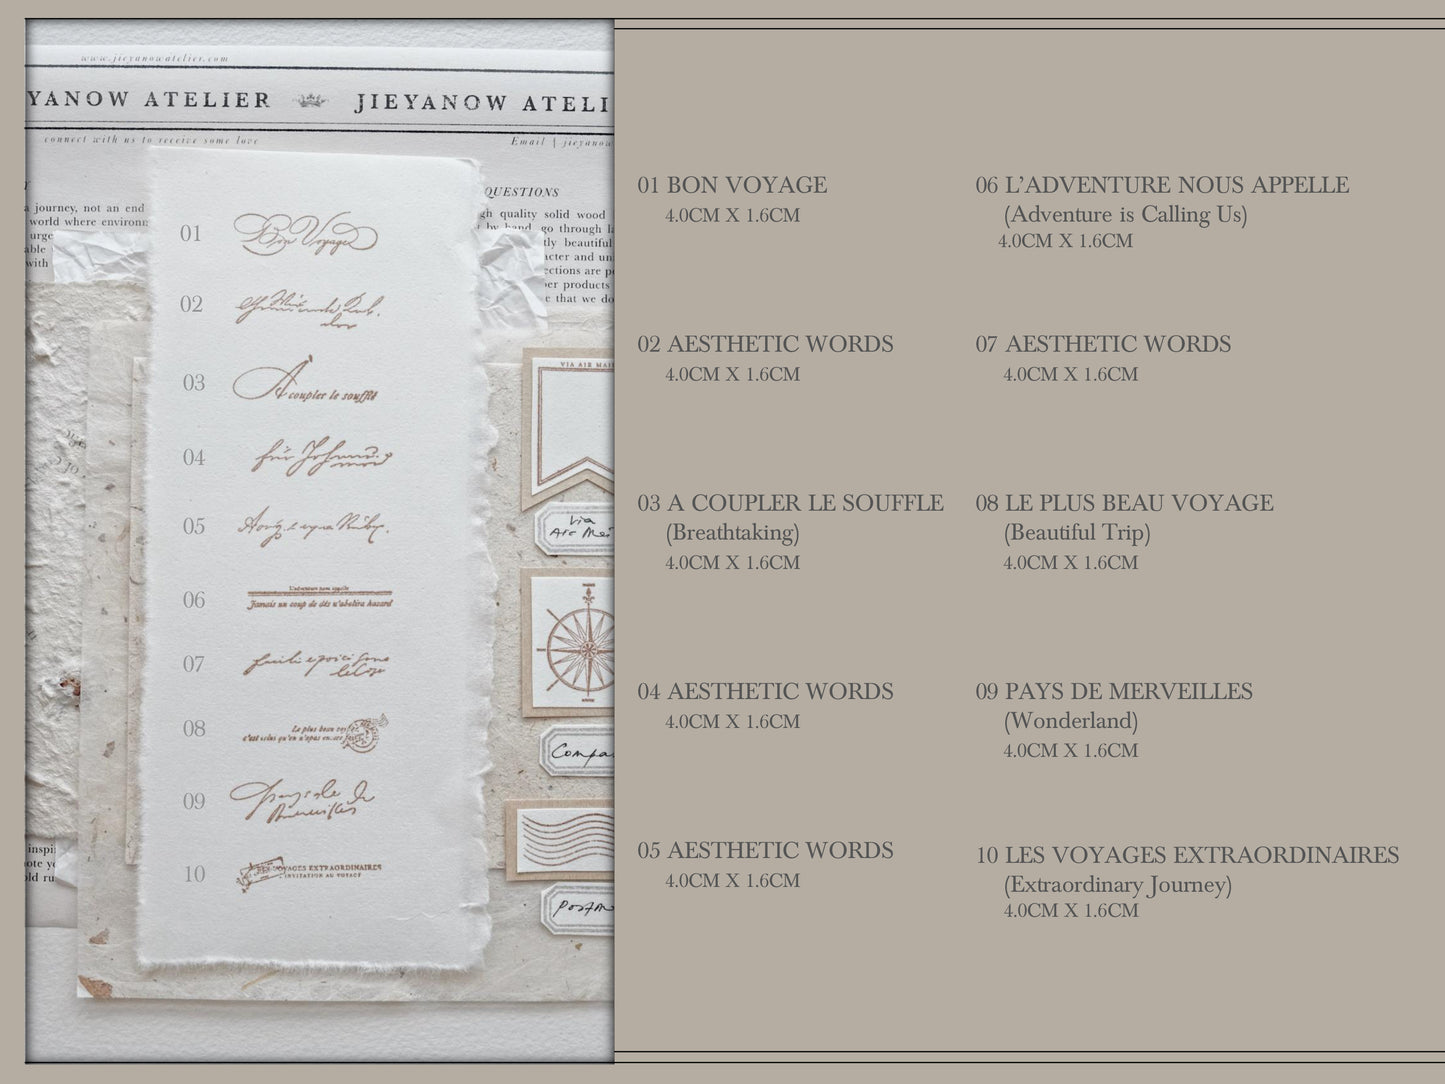 www.jieyanowatelier.com
YANOW ATELIER JIEYANOW ATELI
connect with us to receive some love
Email | jieyanow
QUESTIONS
a journey, not an end
world where environm
urge
able
with
gh quality solid wood
by hand, go through la
tly beautiful
acter and un
ections are pe
per products
e that we do
01 Bon Voyage
02
03 A coupler le souffle
04 für
05
06 L'adventure nous appelle
Jamais un coup de dés n'abolira hasard
07
08 Le plus beau
c'est celui qu'on n'a pas encore
09 Pays de
Merveilles
10 LES VOYAGES EXTRAORDINAIRES
INVITATION AU VOYAGE
VIA AIR MAIL
Via
Air Mai
Compa
Postm
inspi
ote yo
old ru
01 BON VOYAGE
4.0CM X 1.6CM
02 AESTHETIC WORDS
4.0CM X 1.6CM
03 A COUPLER LE SOUFFLE
(Breathtaking)
4.0CM X 1.6CM
04 AESTHETIC WORDS
4.0CM X 1.6CM
05 AESTHETIC WORDS
4.0CM X 1.6CM
06 L’ADVENTURE NOUS APPELLE
(Adventure is Calling Us)
4.0CM X 1.6CM
07 AESTHETIC WORDS
4.0CM X 1.6CM
08 LE PLUS BEAU VOYAGE
(Beautiful Trip)
4.0CM X 1.6CM
09 PAYS DE MERVEILLES
(Wonderland)
4.0CM X 1.6CM
10 LES VOYAGES EXTRAORDINAIRES
(Extraordinary Journey)
4.0CM X 1.6CM